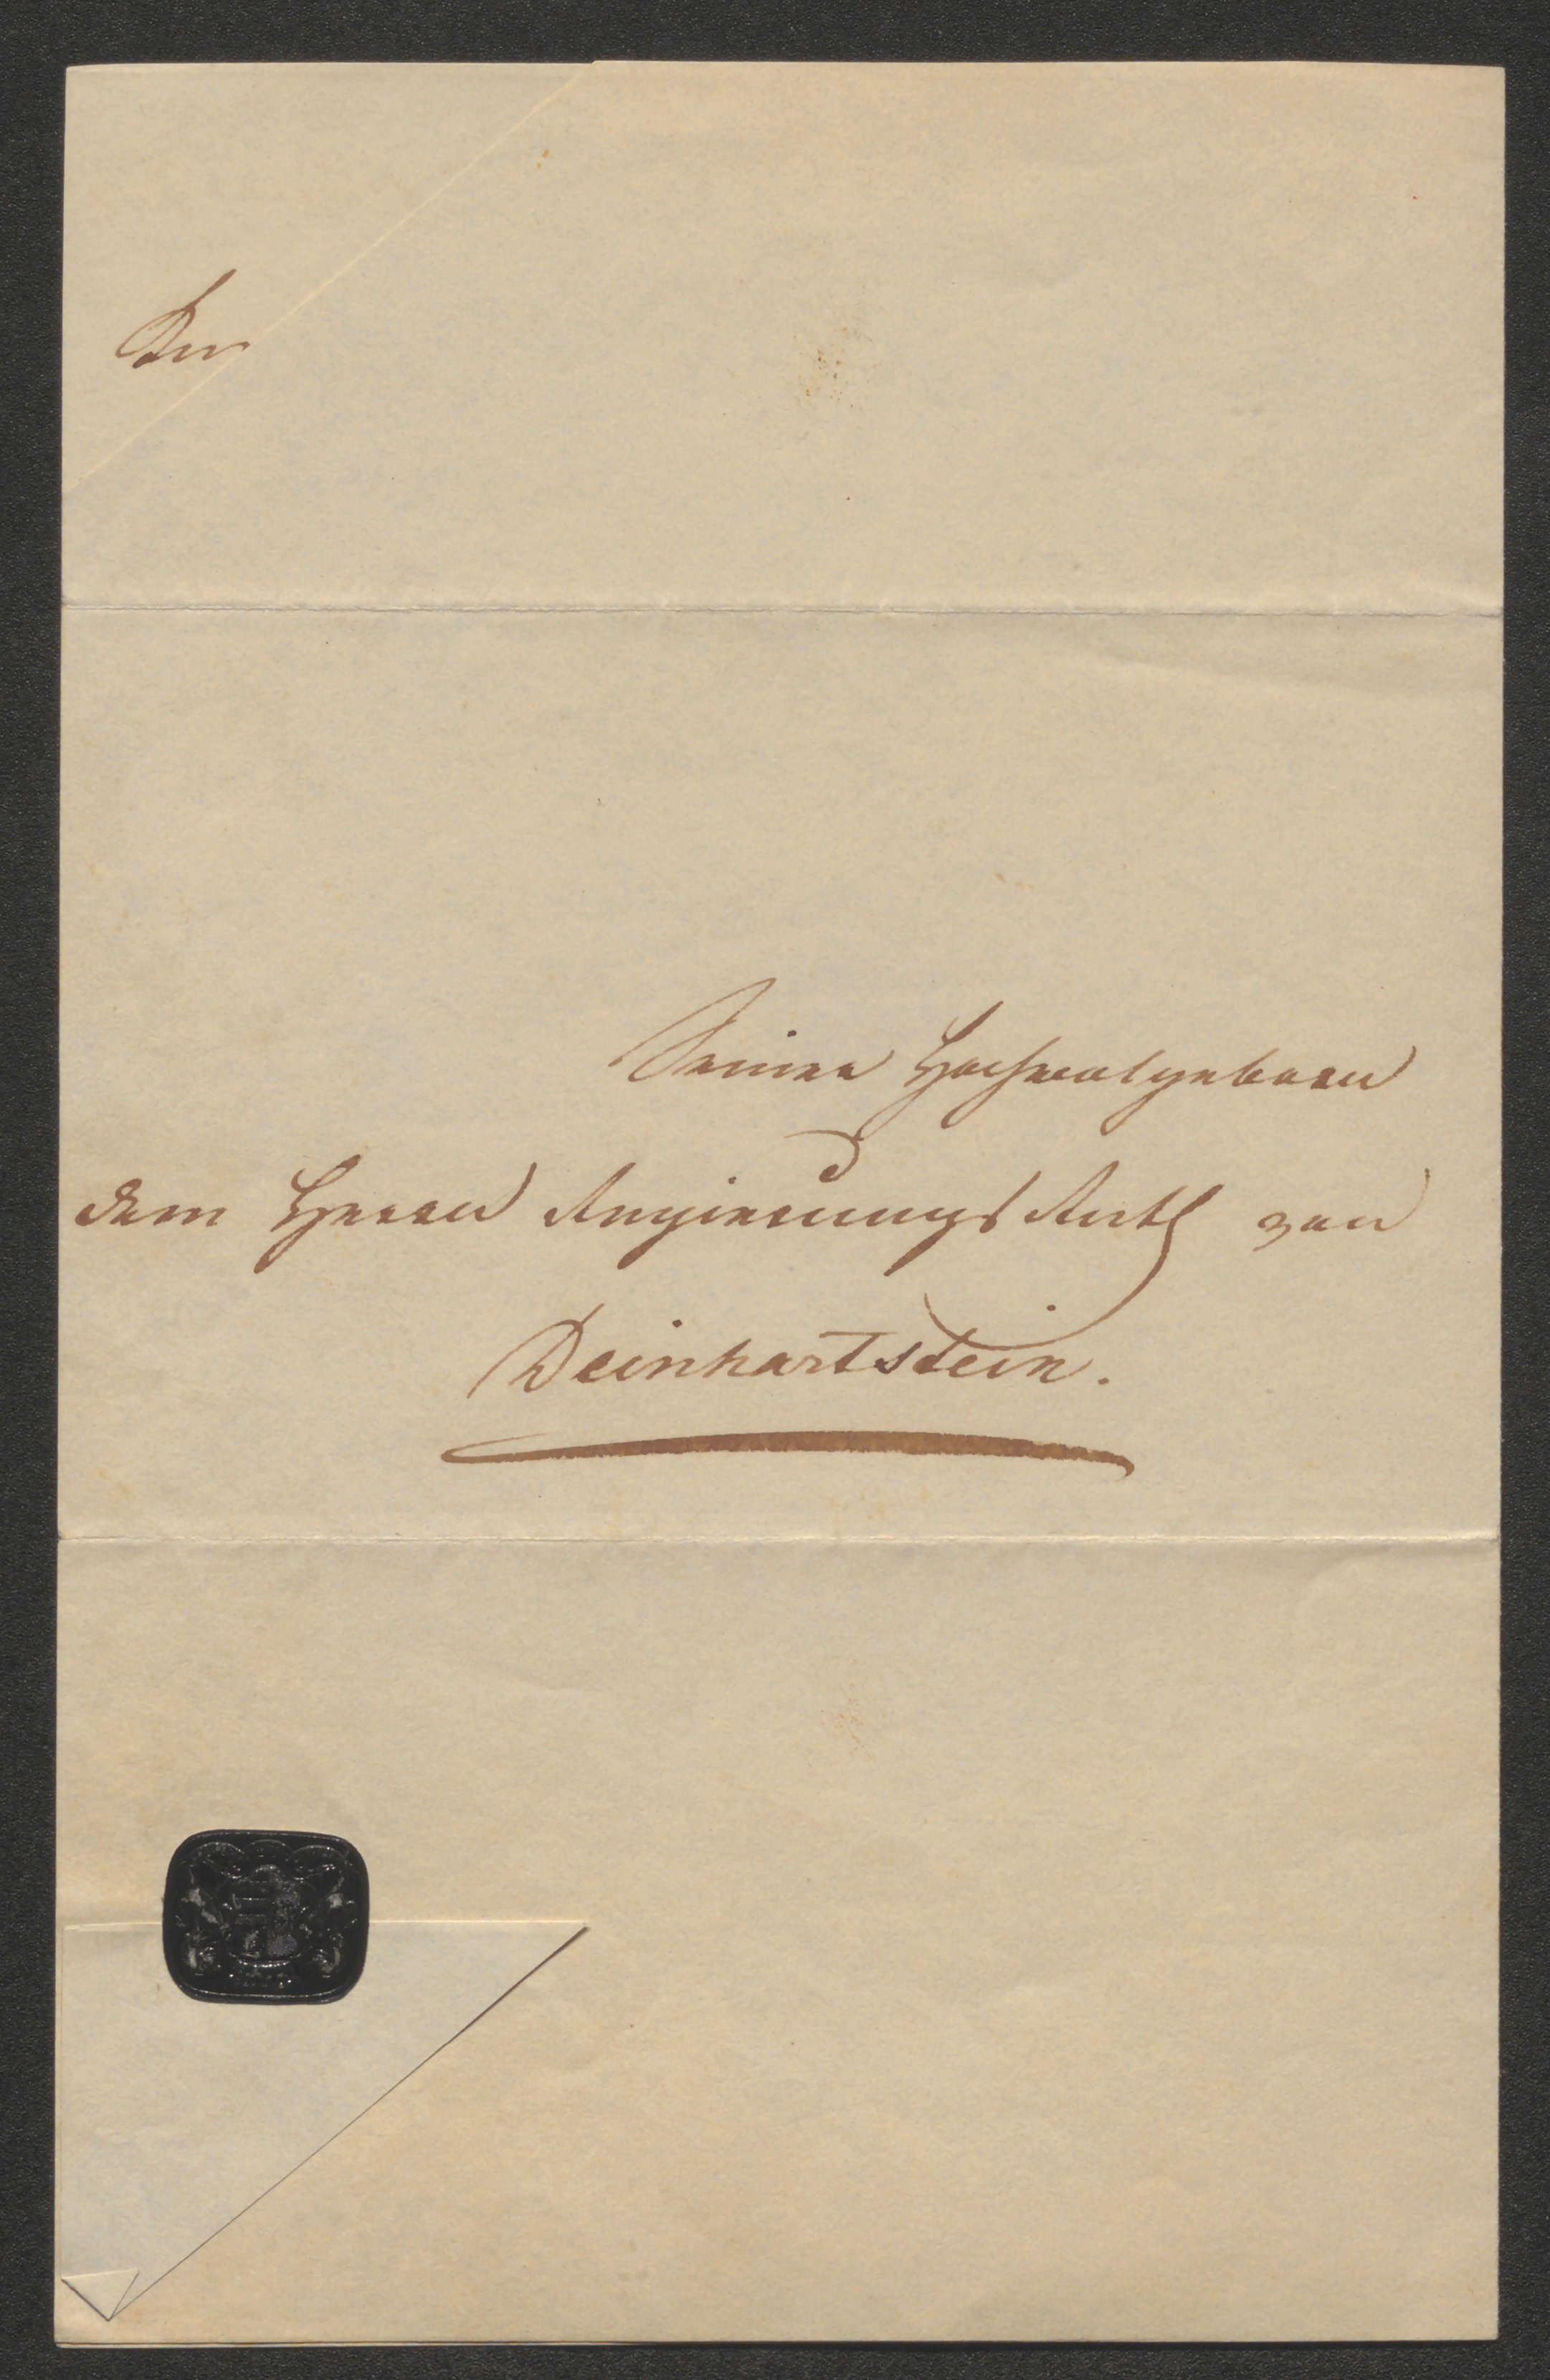 Seiner Hochwolgeboren
dem Herrn Regierungs Rath von
Deinhartstein.